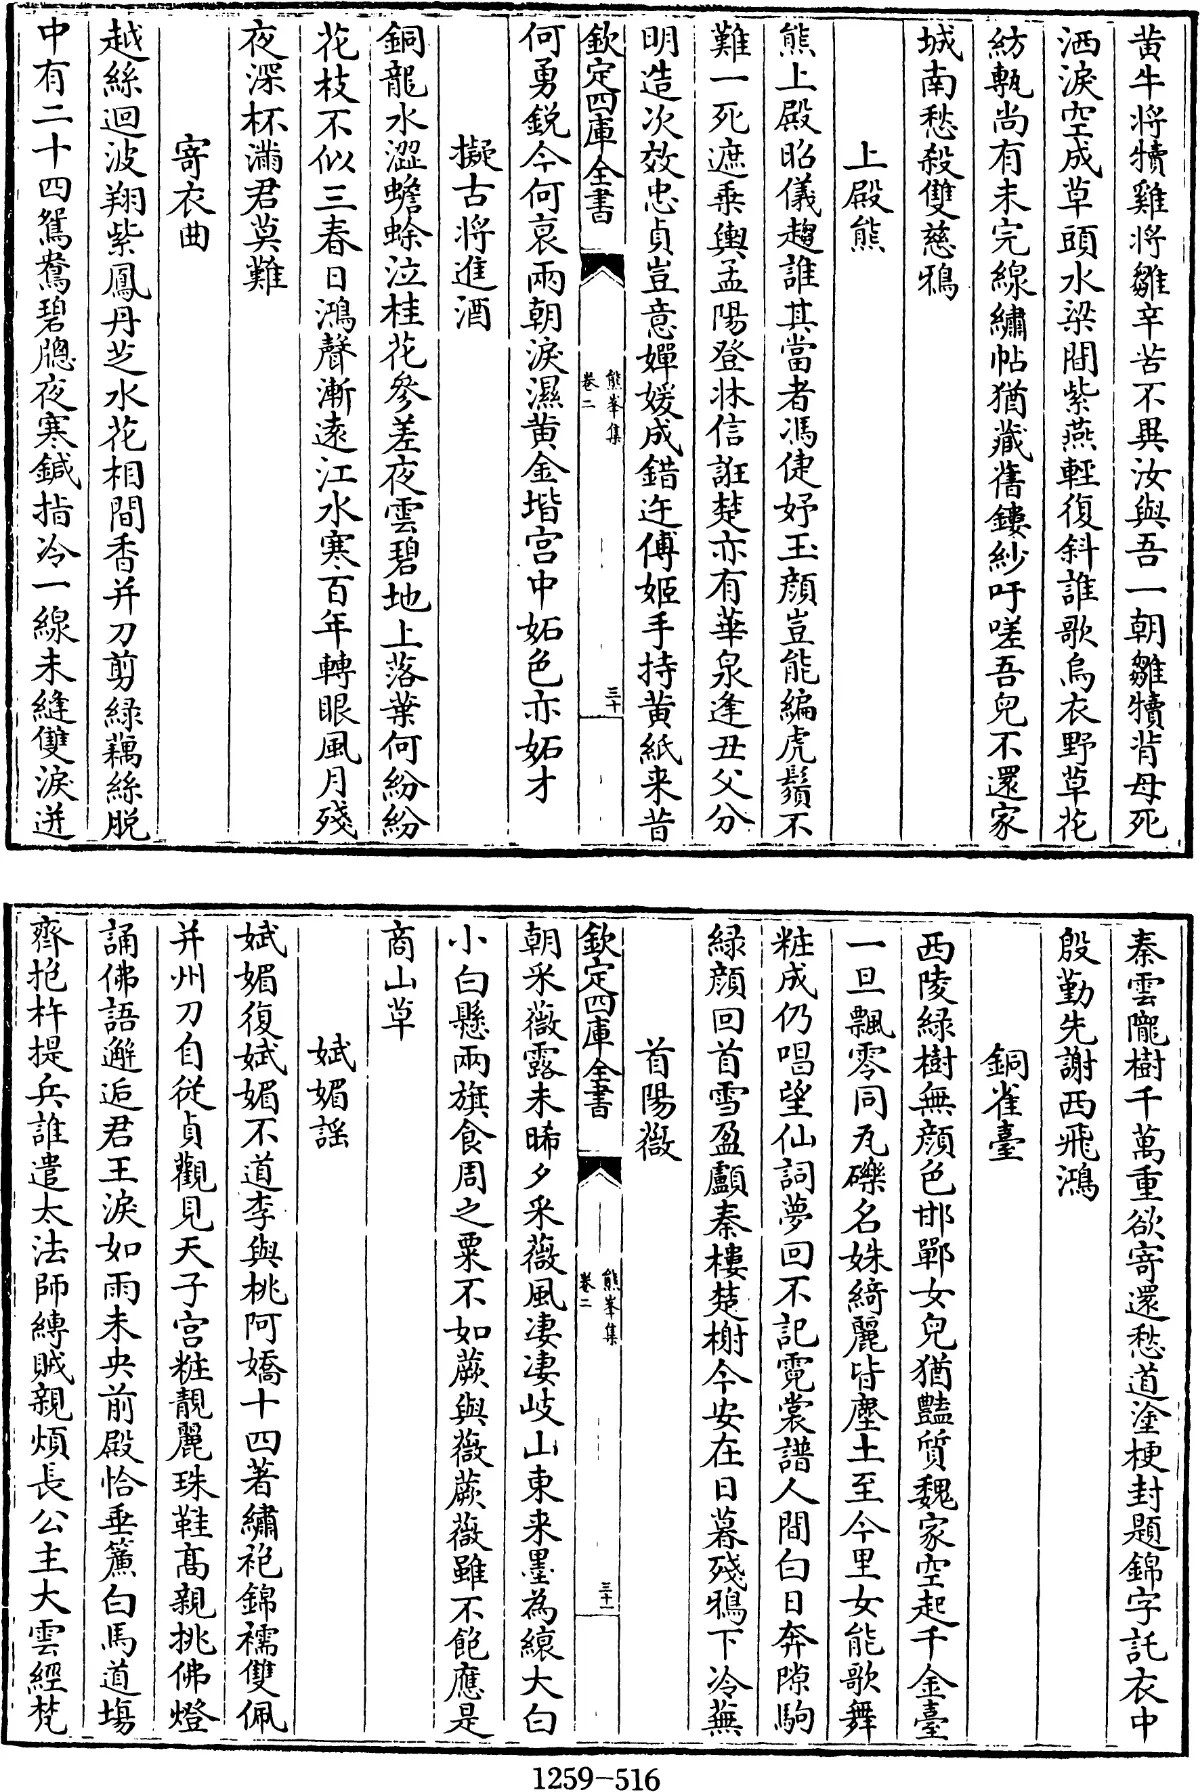 黄牛将犢雞将雛辛苦不異汝與吾一朝雛犢背母死
洒淚空成草頭水梁間紫燕輕復斜誰歌烏衣野草花
紡甎尚有未完線繡帖猶藏舊鏤紗吁嗟吾兒不還家
城南愁殺雙慈鴉
上殿熊
熊上殿昭儀趨誰其當者馮倢妤玉顔豈能編虎鬚不
難一死遮乗輿孟陽登牀信誑楚亦有華泉逢丑父分
明造次效忠貞豈意嬋媛成錯迕傅姬手持黄紙来昔
欽定四庫全書
熊峯集
卷二
三十
何勇鋭今何哀兩朝淚濕黄金堦宫中妬色亦妬才
擬古将進酒
銅龍水澀蟾蜍泣桂花參差夜雲碧地上落葉何紛紛
花枝不似三春日鴻聲漸遠江水寒百年轉眼風月殘
夜深杯滿君莫難
寄衣曲
越絲迴波翔紫鳳丹芝水花相間香并刀剪緑藕絲脱
中有二十四鴛鴦碧牕夜寒鍼指冷一線未縫雙淚迸
秦雲隴樹千萬重欲寄還愁道塗梗封題錦字託衣中
殷勤先謝西飛鴻
銅雀臺
西陵緑樹無顔色邯鄲女兒猶豔質魏家空起千金臺
一旦飄零同瓦礫名姝綺麗皆塵土至今里女能歌舞
粧成仍唱望仙詞夢回不記霓裳譜人間白日奔隙駒
緑顔回首雪盈顱秦樓楚榭今安在日暮殘鴉下冷蕪
首陽薇
欽定四庫全書
熊峯集
卷二
三十一
朝采薇露未晞夕采薇風凄凄岐山東来墨為縗大白
小白懸兩旗食周之粟不如蕨與薇蕨薇雖不飽應是
商山草
娬媚謡
娬媚復娬媚不道李與桃阿嬌十四著繡袍錦襦雙佩
并州刀自從貞觀見天子宫粧靚麗珠鞋髙親挑佛燈
誦佛語邂逅君王淚如雨未央前殿恰垂簾白馬道塲
齊抱杵提兵誰遣太法師縛賊親煩長公主大雲經梵
1259-516